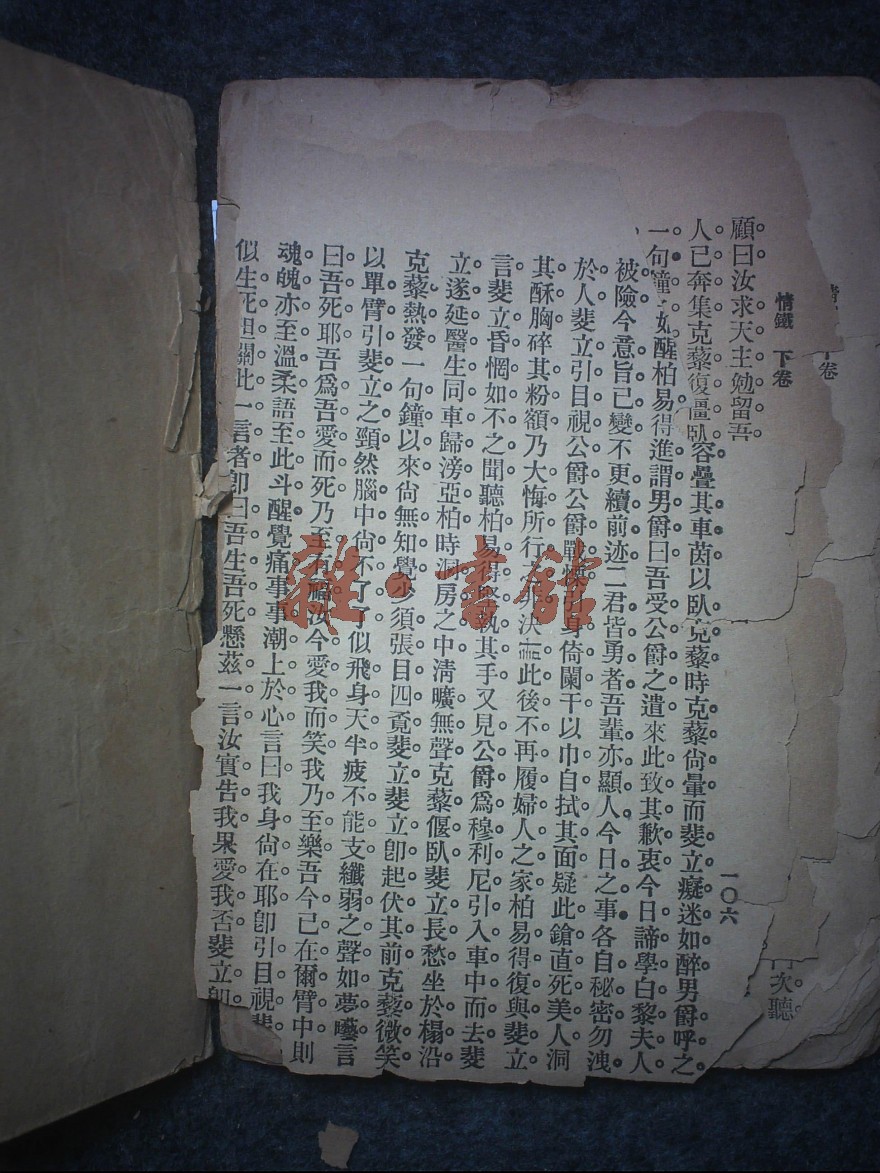 情鐵 下卷
一〇六
顧曰汝求天主勉留吾
人已奔集克藜復僵臥容疊其車茵以臥克藜時克藜尙暈而斐立癡迷如醉男爵呼之
一句鐘 如醒柏易得進謂男爵曰吾受公爵之遣來此致其歉衷今日諦學白黎夫人
被險今意旨已變不更續前迹二君皆勇者吾輩亦顯人今日之事各自秘密勿洩
於人斐立引目視公爵公爵戰慄引身倚闌干以巾自拭其面疑此鎗直死美人洞
其酥胸碎其粉額乃大悔所行 決 此後不再履婦人之家柏易得復與斐立
言斐立昏惘如不之聞聽柏易得堅執其手又見公爵爲穆利尼引入車中而去斐
立遂延醫生同車歸滂亞柏時洞房之中淸曠無聲克藜偃臥斐立長愁坐於榻沿
克藜熱發一句鐘以來尙無知覺少須張目四覔斐立斐立卽起伏其前克藜微笑
以單臂引斐立之頸然腦中尙不了了似飛身天半疲不能支纖弱之聲如夢囈言
曰吾死耶吾爲吾愛而死乃至有福汝今愛我而笑我乃至樂吾今已在爾臂中則
魂魄亦至溫柔語至此斗醒覺痛事事潮上於心言曰我身尙在耶卽引目視斐
似生死 關此一言者卽曰吾生吾死懸茲一言汝實告我果愛我否斐立卽
下卷
次聽